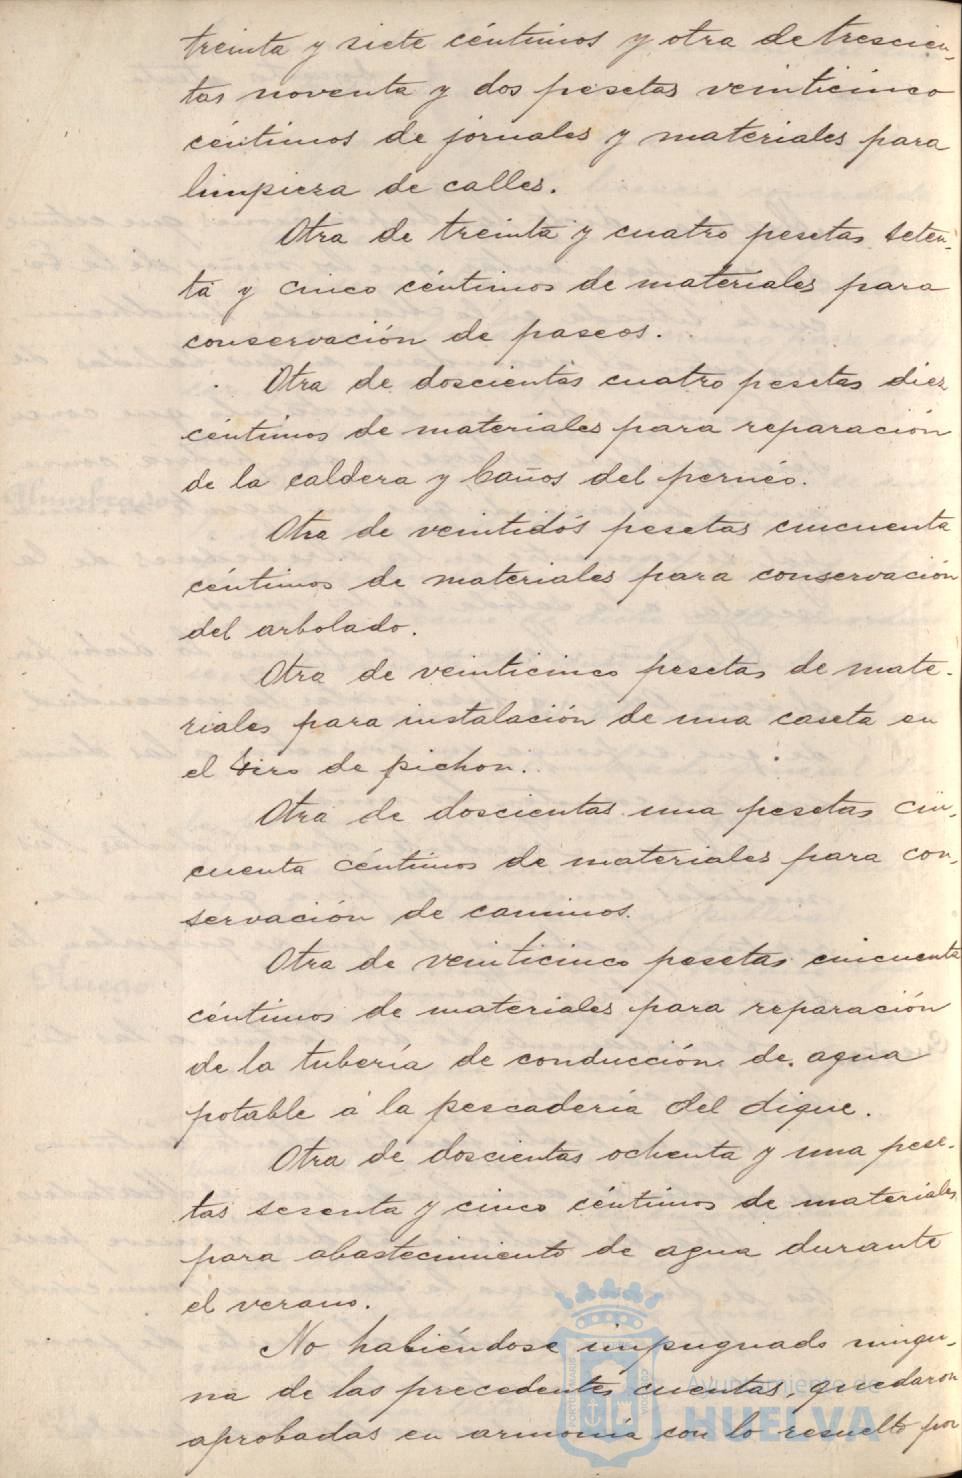 treinta y siete céntimos y otra de trescien-
tas noventa y dos pesetas veinticinco
céntimos de jornales y materiales para
limpieza de calles.
Otra de treinta y cuatro pesetas seten-
ta y cinco céntimos de materiales para
conservación de paseos.
Otra de doscientas cuatro pesetas diez
céntimos de materiales para reparación
de la caldera y baños del pernéo.
Otra de veintidós pesetas cincuenta
céntimos de materiales para conservación
del arbolado.
Otra de veinticinco pesetas de mate-
riales para instalación de una caseta en
el tiro de pichon.
Otra de doscientas una pesetas cin-
cuenta céntimos de materiales para con-
servación de caminos.
Otra de veinticinco pesetas cincuenta
céntimos de materiales para reparación
de la tubería de conducción de agua
potable á la pescadería del dique.
Otra de doscientas ochenta y una pese-
tas sesenta y cinco céntimos de materiales
para abastecimiento de agua durante
el verano.
No habiéndose impugnado ningu-
na de las precedentes cuentas, quedaron
aprobadas en armonía con lo resuelto por
Ayuntamiento de
HUELVA